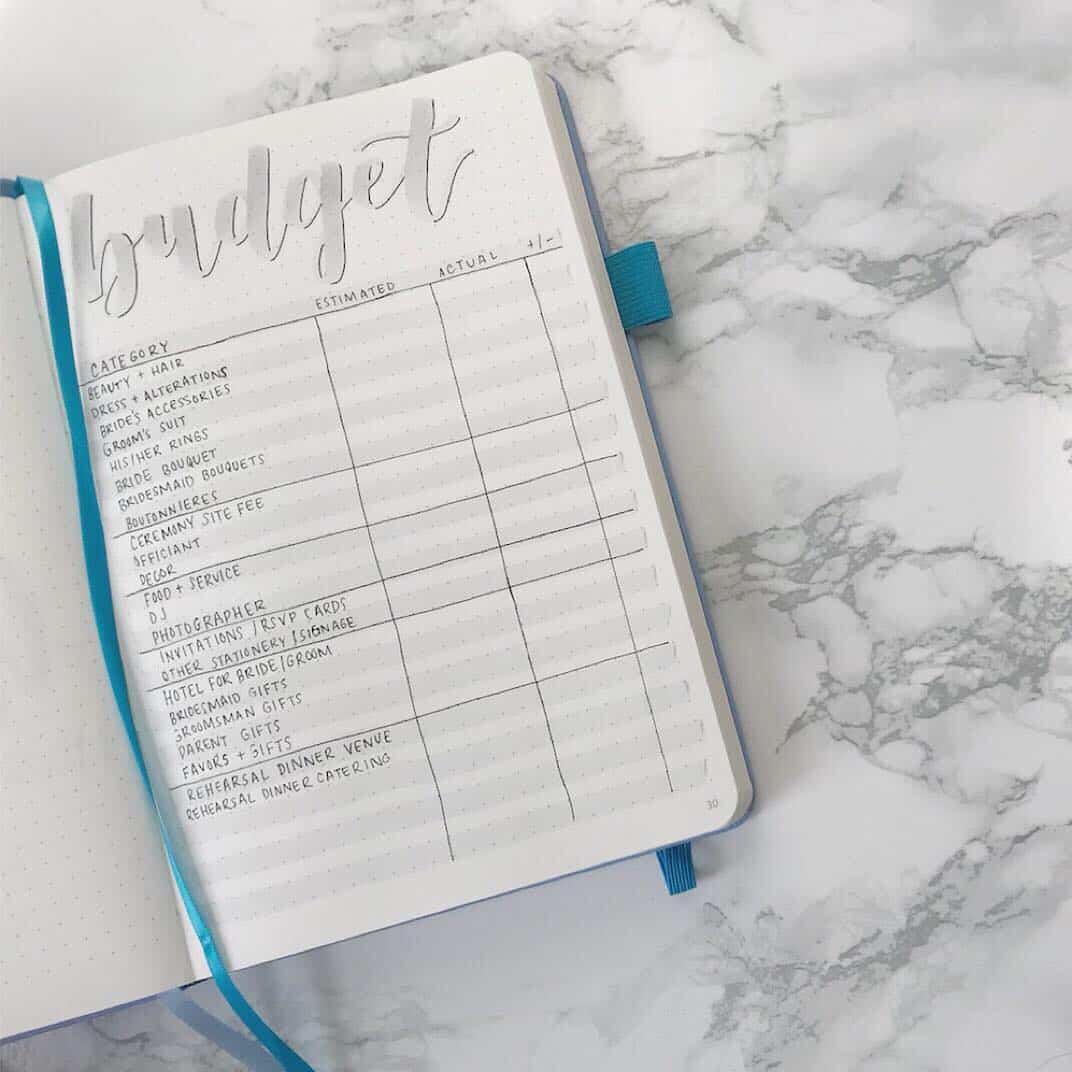 budget
CATEGORY ESTIMATED ACTUAL +/-
BEAUTY + HAIR
DRESS + ALTERATIONS
BRIDE'S ACCESSORIES
GROOM'S SUIT
HIS/HER RINGS
BRIDE BOUQUET
BRIDESMAID BOUQUETS
BOUTONNIERES
CEREMONY SITE FEE
OFFICIANT
DECOR
FOOD + SERVICE
DJ
PHOTOGRAPHER
INVITATIONS / RSVP CARDS
OTHER STATIONERY / SIGNAGE
HOTEL FOR BRIDE/GROOM
BRIDESMAID GIFTS
GROOMSMAN GIFTS
PARENT GIFTS
FAVORS + GIFTS
REHEARSAL DINNER VENUE
REHEARSAL DINNER CATERING
30